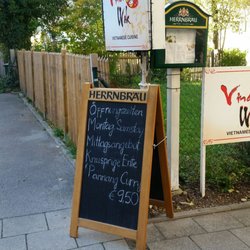 Wok
VIETNAMESE CUISINE
HERRNBRÄU
HERRNBRÄU
Öffnungszeiten
Montag Samstag
Mittagsangebot
Knusprige Ente
Pannang Curry
€ 9,50
VIETNAMES